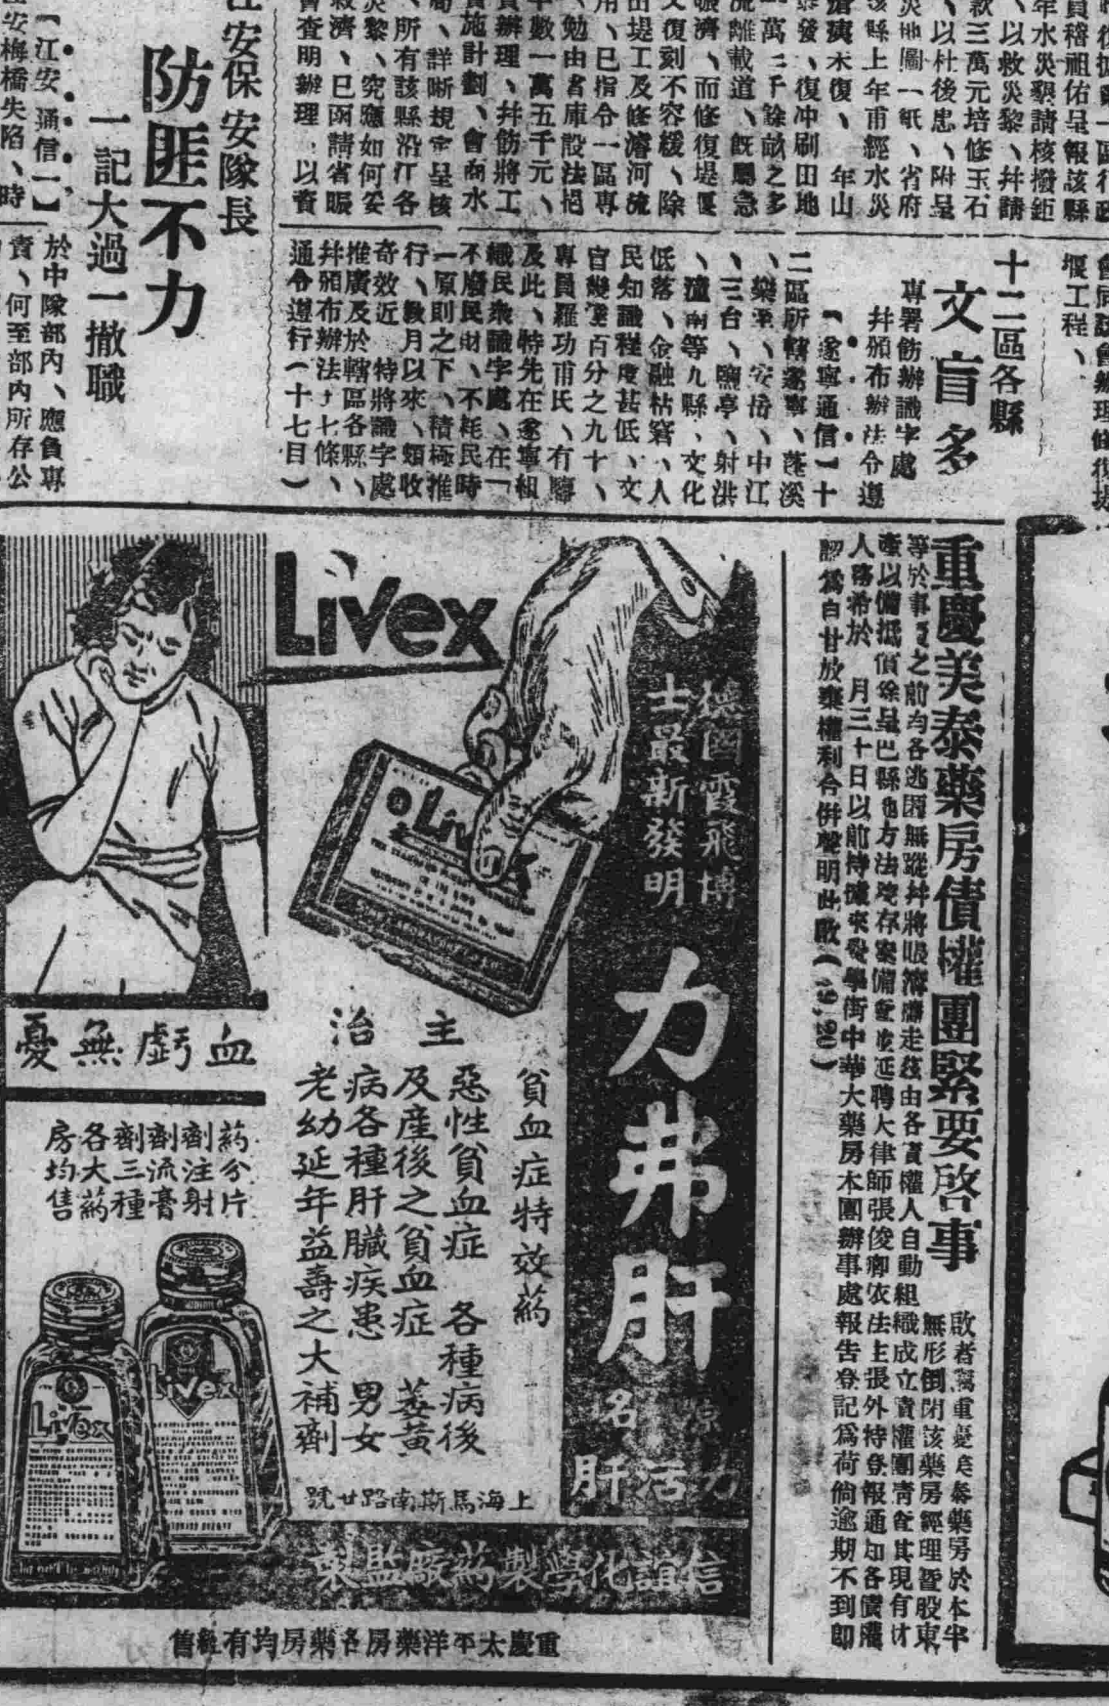 員稽祖佑呈報該縣
年水災墾請核撥鉅
、以救災黎、幷請
款三萬元培修玉石
、以杜後患、附呈
災地圖一紙、省府
該縣上年甫經水災
瘡痍未復、年山
暴發、復冲刷田地
一萬二千餘畝之多
流離載道、旣屬急
賑濟、而修復堤堰
又復刻不容緩、除
田堤工及修濬河流
用、已指令一區專
、勉由省庫設法挹
年數一萬五千元、
賑辦理、幷飭將工
實施計劃、會商水
局、詳晰規定呈核
、所有該縣沿江各
災黎、究應如何安
救濟、已函請省賑
會查明辦理、以資
堰工程、
十二區各縣
文盲多
專署飭辦識字處
幷頒布辦法令遵
【遂寧通信】十
二區所轄遂寧、蓬溪
、樂至、安岳、中江
、三台、鹽亭、射洪
、潼南等九縣、文化
低落、金融枯窘、人
民知識程度甚低、文
盲幾達百分之九十、
專員羅功甫氏、有鑒
及此、特先在遂寧組
織民衆識字處、在「
不廢民財、不耗民時
」原則之下、積極推
行、數月以來、頗收
奇效近、特將識字處
推廣及於轄區各縣、
幷頒布辦法十七條、
通令遵行（十七目）
江安保安隊長
防匪不力
一記大過一撤職
【江安通信】
江安梅橋失陷、時
於中隊部內、應負專
責、何至部內所存公
重慶美泰藥房債權團緊要啓事
啟者窩重慶美泰藥房於本半
無形倒閉該藥房經理暨股東
等於事前之前均各逃匿無蹤幷將賬簿攜走後由各債權人自動組織成立債權團淸查其現有財
產以備抵償餘呈巴縣地方法院存案備查後延聘大律師張俊卿依法主張外特登報通知各債權
人務希於 月三十日以前持據來發學街中華大藥房本團辦事處報告登記爲荷倘逾期不到卽
認爲自甘放棄權利合併聲明此啟
Livex
德國靈飛博
士最新發明
力弗肝
原名
力活肝
主治
貧血症特效葯
惡性貧血症 各種病後
及產後之貧血症 萎黃
病各種肝臟疾患 男女
老幼延年益壽之大補劑
上海馬斯南路廿號
信誼化學製葯廠監製
血虧無憂
葯分片
劑注射
劑流膏
劑三種
各大葯
房均售
Livex
Livex
Livex
重慶太平洋藥房各藥房均有經售